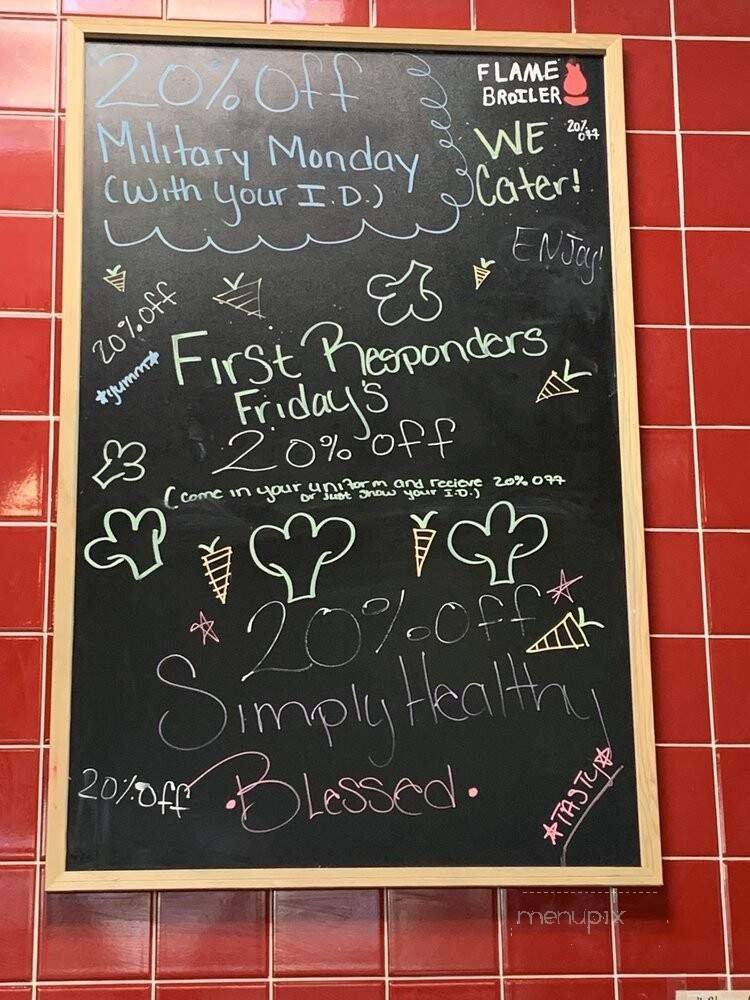 20% Off
Military Monday
(With your I.D.)
FLAME
BROILER
WE
Cater!
20%
off
ENJoy!
20% off
*yumm*
First Responders
Friday's
20% off
(come in your uniform and recieve 20% off
or just show your I.D.)
20% off
Simply Healthy
20% Off
Blessed
*TASTY*
menupix